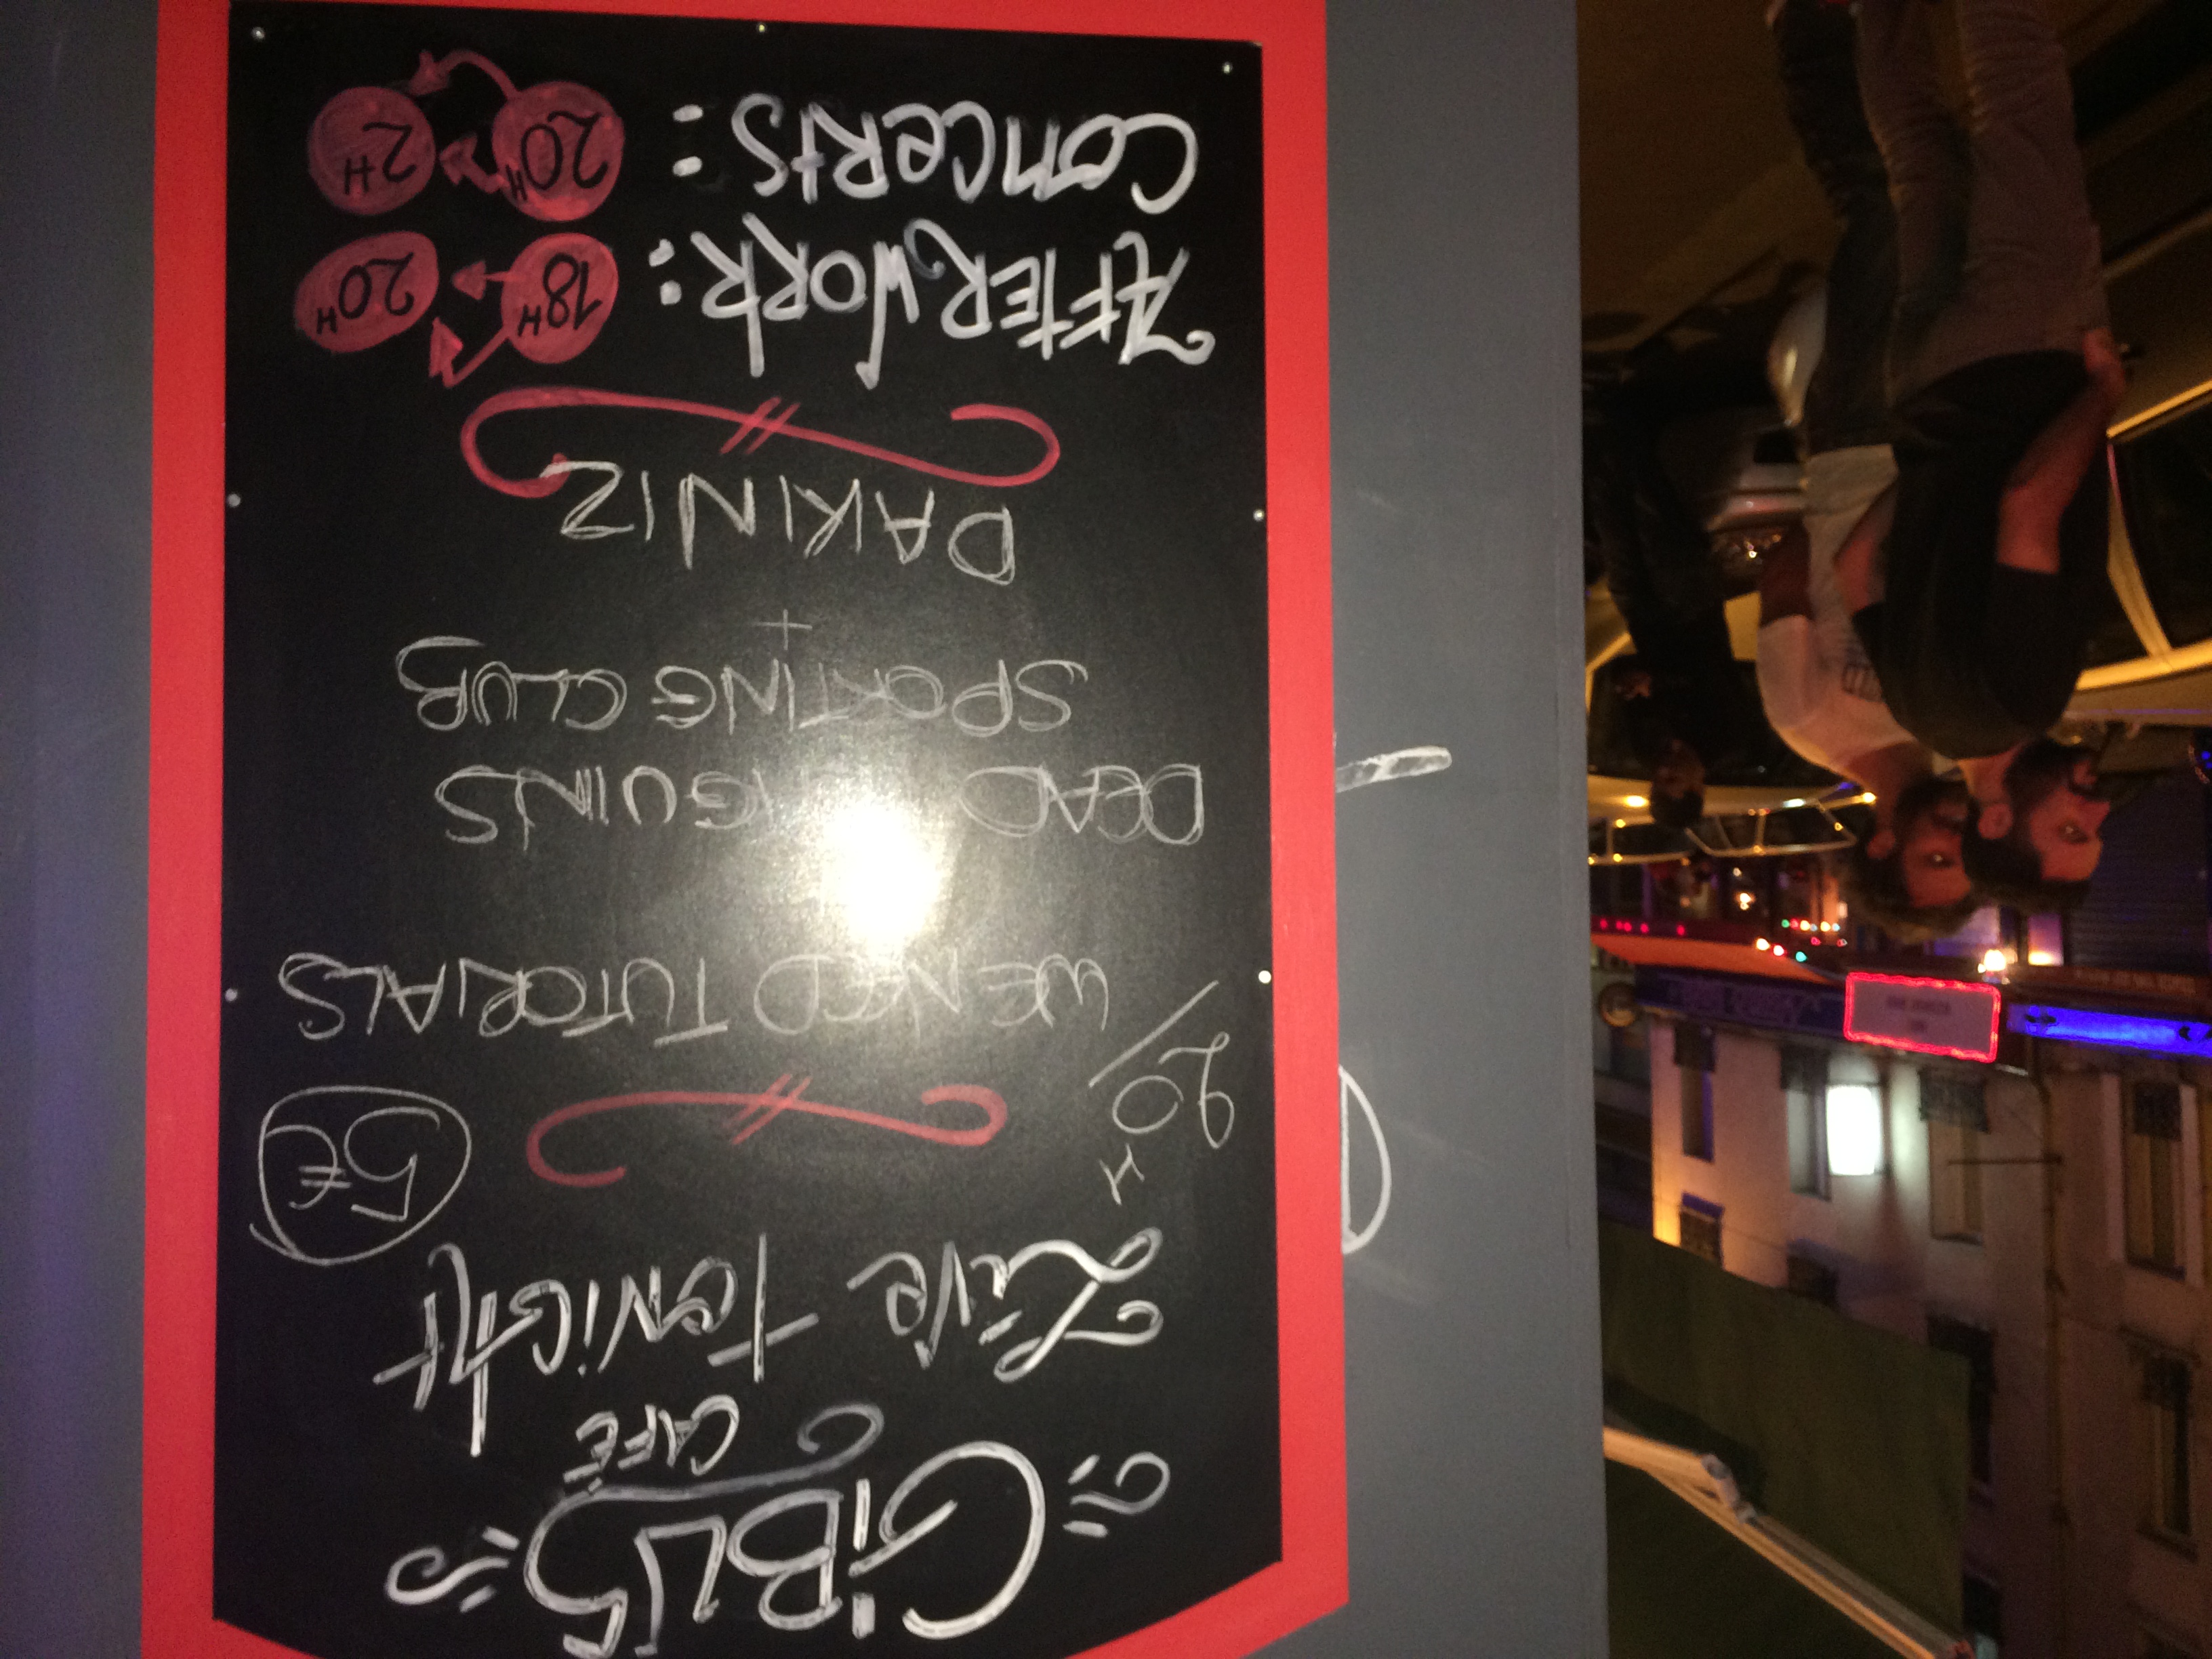 GIBUS
CAFÉ
LIVE TONIGHT
20H
5€
WE NEED TUTORIALS
DEAD
SPORTING CLUB
+
DAKINIZ
AFTERWORK: 18H 20H
CONCERTS: 20H 2H